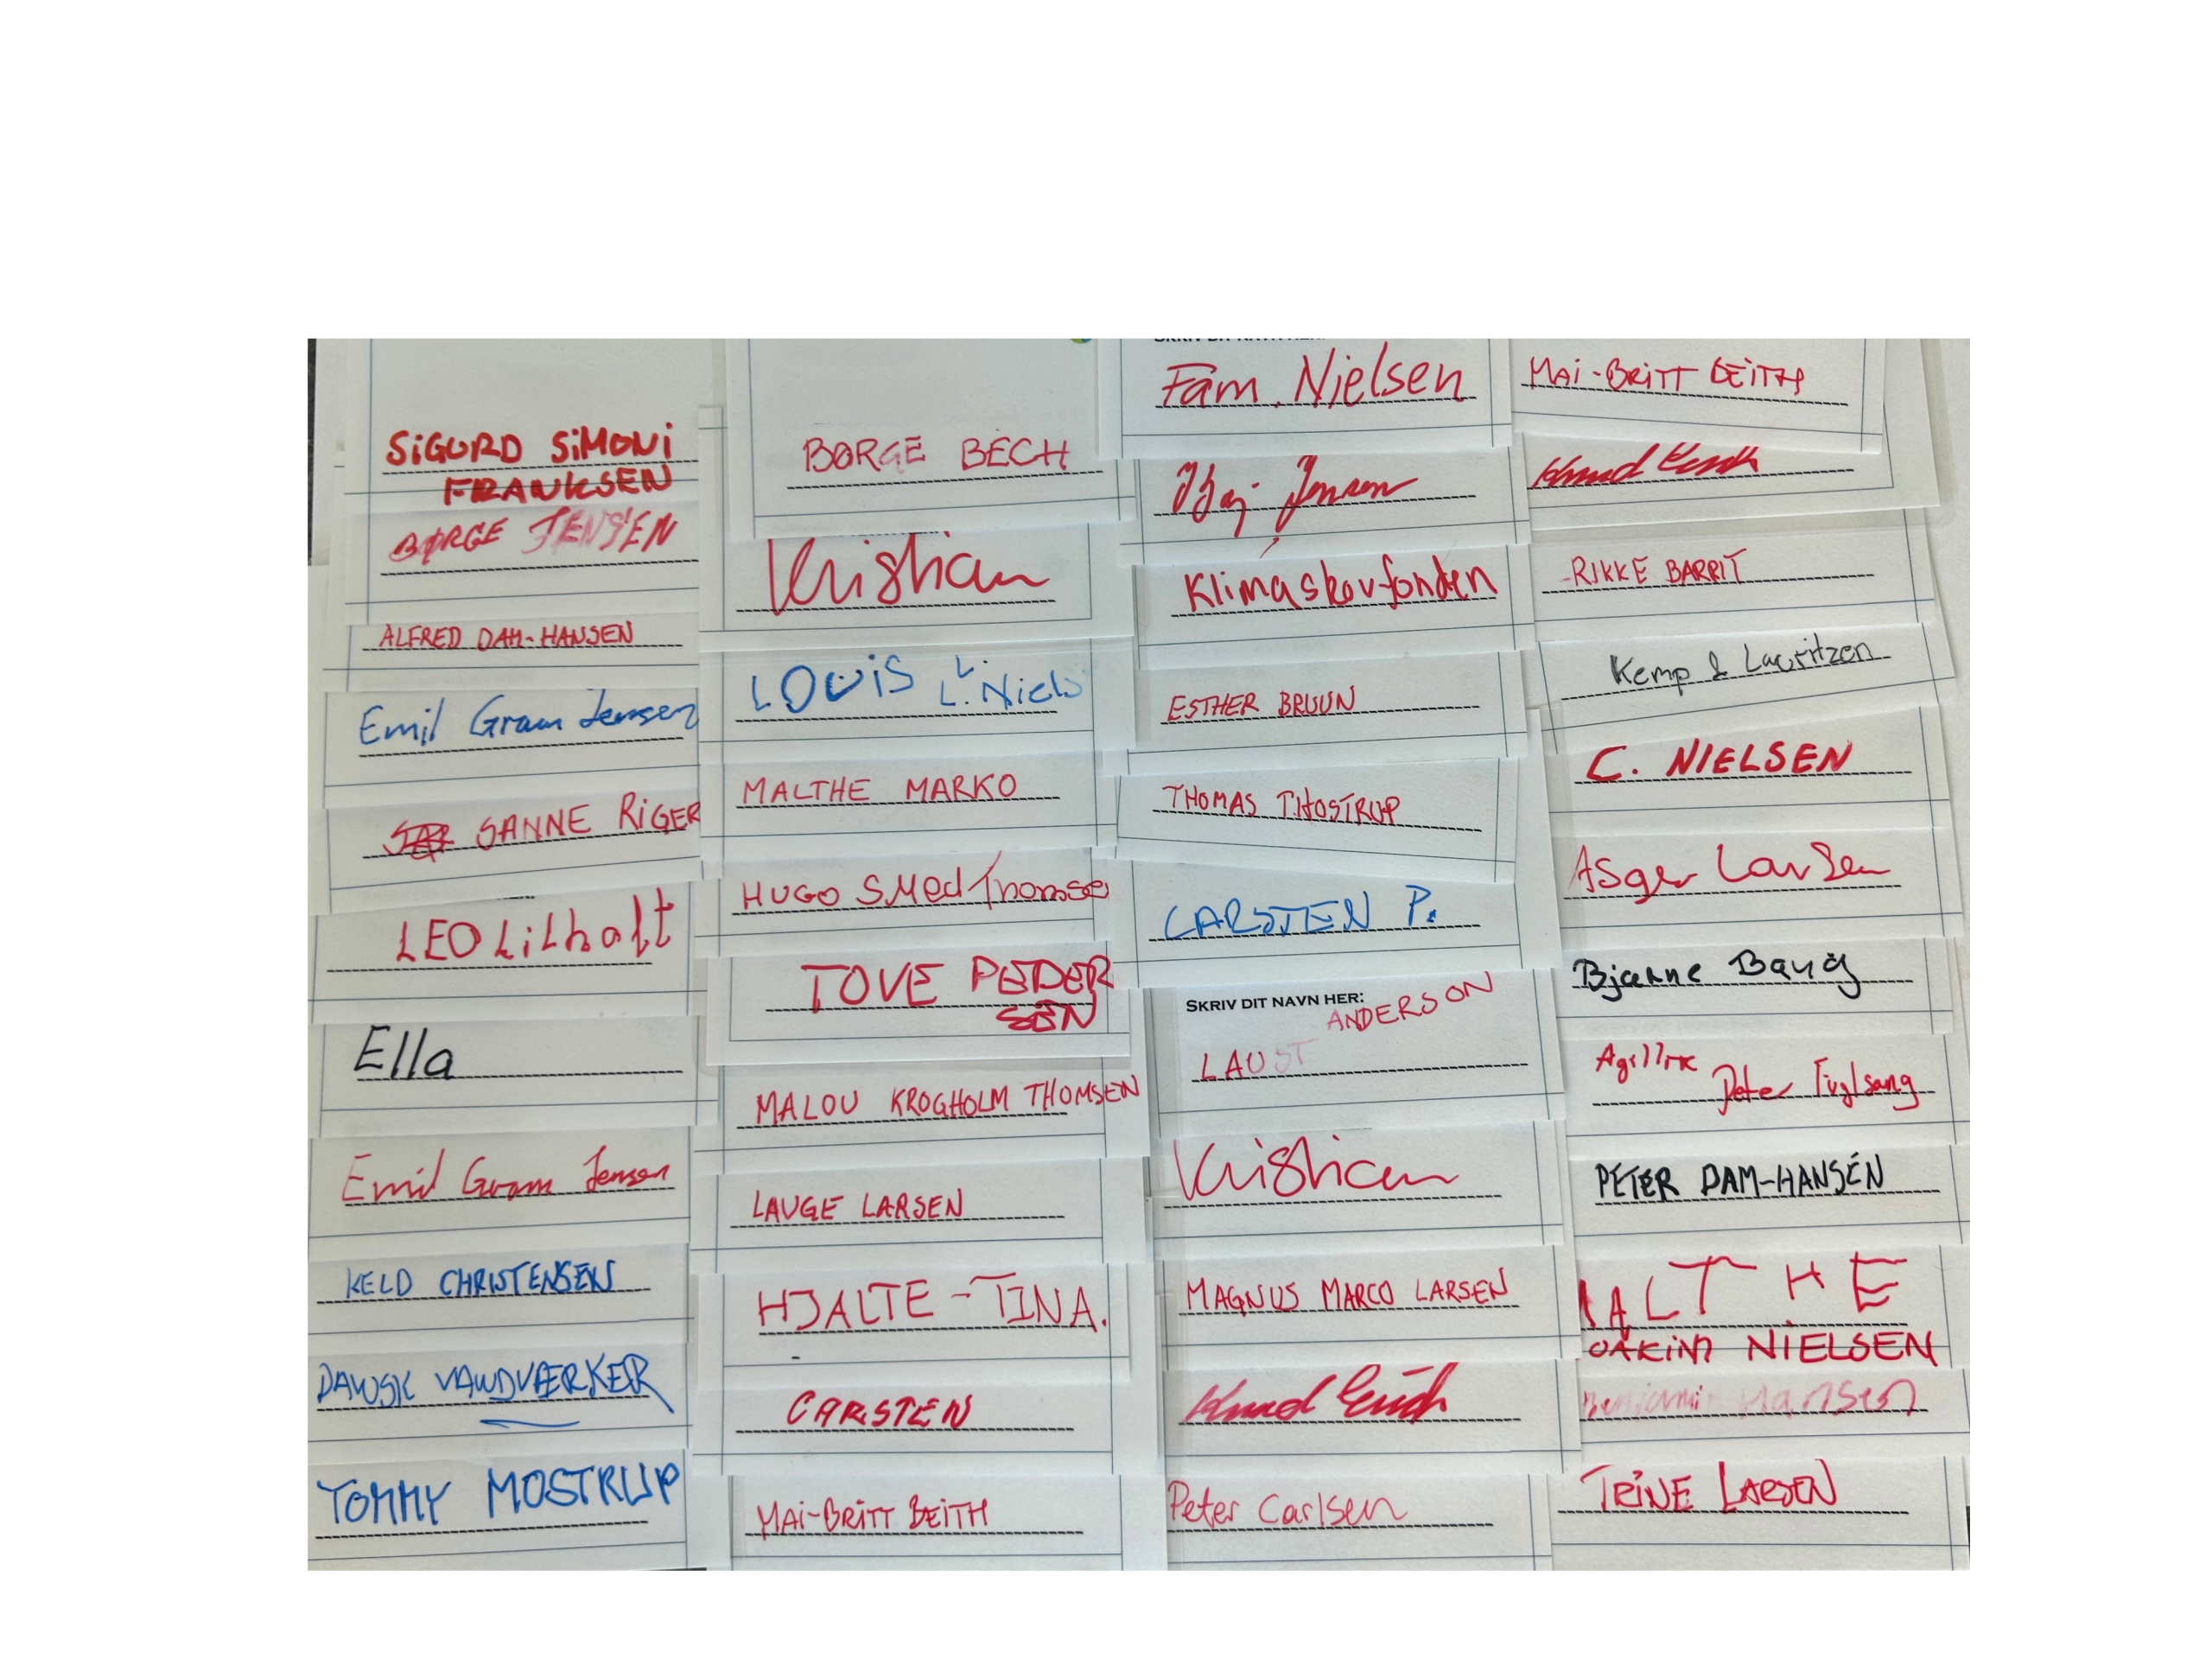 SiGURD SiMONi
FRANKSEN
BØRGE JENSEN
ALFRED DAM-HANSEN
Emil Gram Jensen
SANNE RiGER
LEO Lilholt
Ella
Emil Gram Jensen
KELD CHRISTENSEN
DANSK VANDVÆRKER
TOMMY MOSTRUP
BØRGE BECH
Kristian
LOUiS L. Niels
MALTHE MARKO
HUGO SMed Thomse
TOVE PEDER
SEN
MALOU KROGHOLM THOMSEN
LAUGE LARSEN
HJALTE-TINA.
CARSTEN
MAi-BRiTT BEiTH
Fam. Nielsen
Jensen
Klimaskovfonden
ESTHER BRUUN
THOMAS THOSTRUP
CARSTEN P.
SKRIV DIT NAVN HER:
ANDERSON
LAUST
Kristian
MAGNUS MARCO LARSEN
Knud Erich
Peter Carlsen
MAi-BRiTT BEiTH
Knud Erich
RIKKE BARRIT
Kemp & Lauritzen
C. NIELSEN
ASger LarSen
Bjarne Bang
Peter Fuglsang
PETER DAM-HANSEN
ALTHE
OAKiM NiELSEN
Benjamin Hansen
TRiNE LARSEN